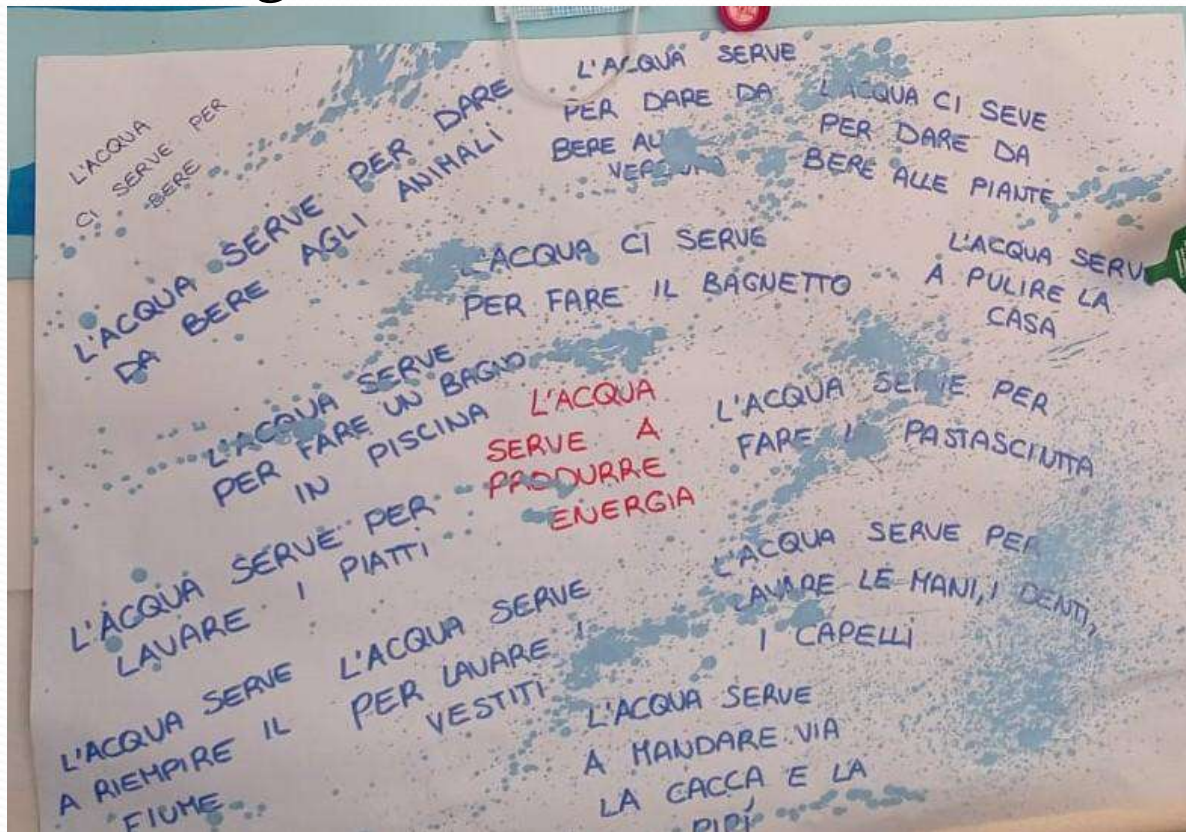 L'ACQUA
CI SERVE PER
BERE
L'ACQUA SERVE PER DARE
DA BERE AGLI ANIMALI
L'ACQUA SERVE
PER DARE DA
BERE
L'ACQUA CI SEVE
PER DARE DA
BERE ALLE PIANTE
L'ACQUA CI SERVE
PER FARE IL BAGNETTO
L'ACQUA SERVE
A PULIRE LA
CASA
L'ACQUA SERVE
PER FARE UN BAGNO
IN PISCINA
L'ACQUA
SERVE A
PRODURRE
ENERGIA
L'ACQUA SERVE PER
FARE PASTASCIUTTA
L'ACQUA SERVE PER
LAVARE I PIATTI
L'ACQUA SERVE PER
LAVARE LE MANI, I DENTI,
I CAPELLI
L'ACQUA SERVE
A RIEMPIRE IL
FIUME
L'ACQUA SERVE
PER LAVARE I
VESTITI
L'ACQUA SERVE
A MANDARE VIA
LA CACCA E LA
PIPÍ